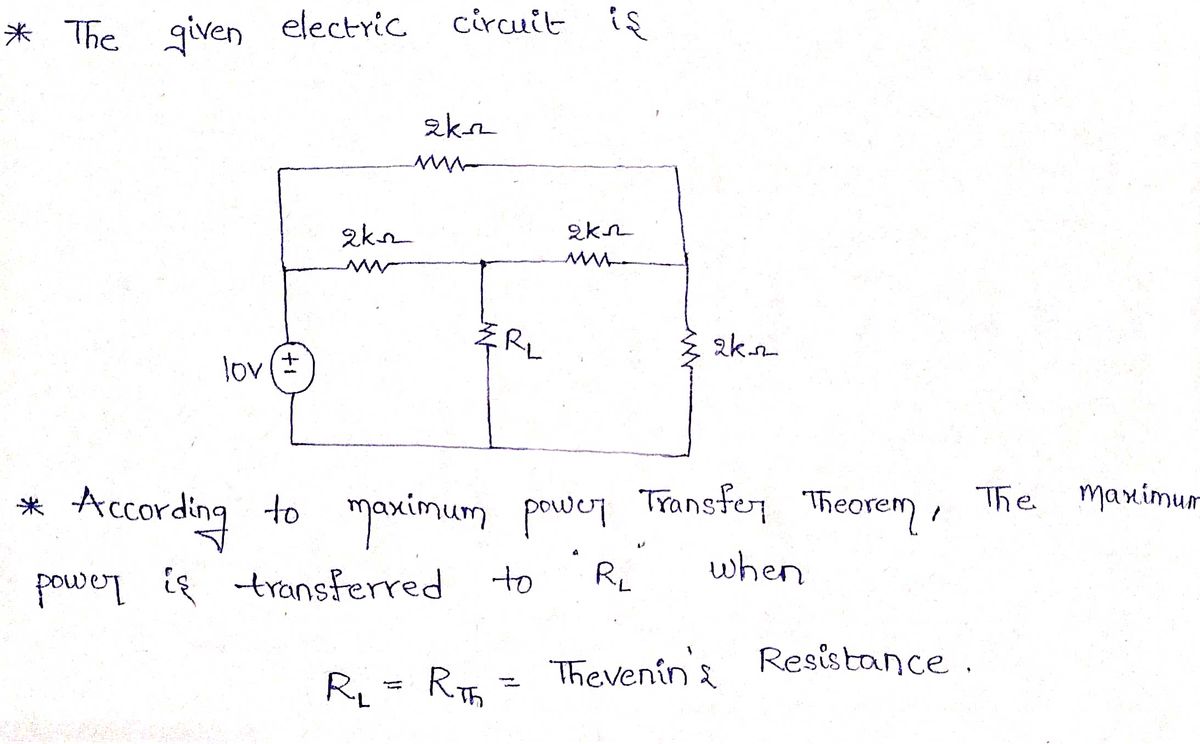 * The given electric circuit is
2kΩ
2kΩ 2kΩ
10V + - RL 2kΩ
* According to maximum power Transfer Theorem, The maximum
power is transferred to "RL" when
RL = RTh = Thevenin's Resistance.